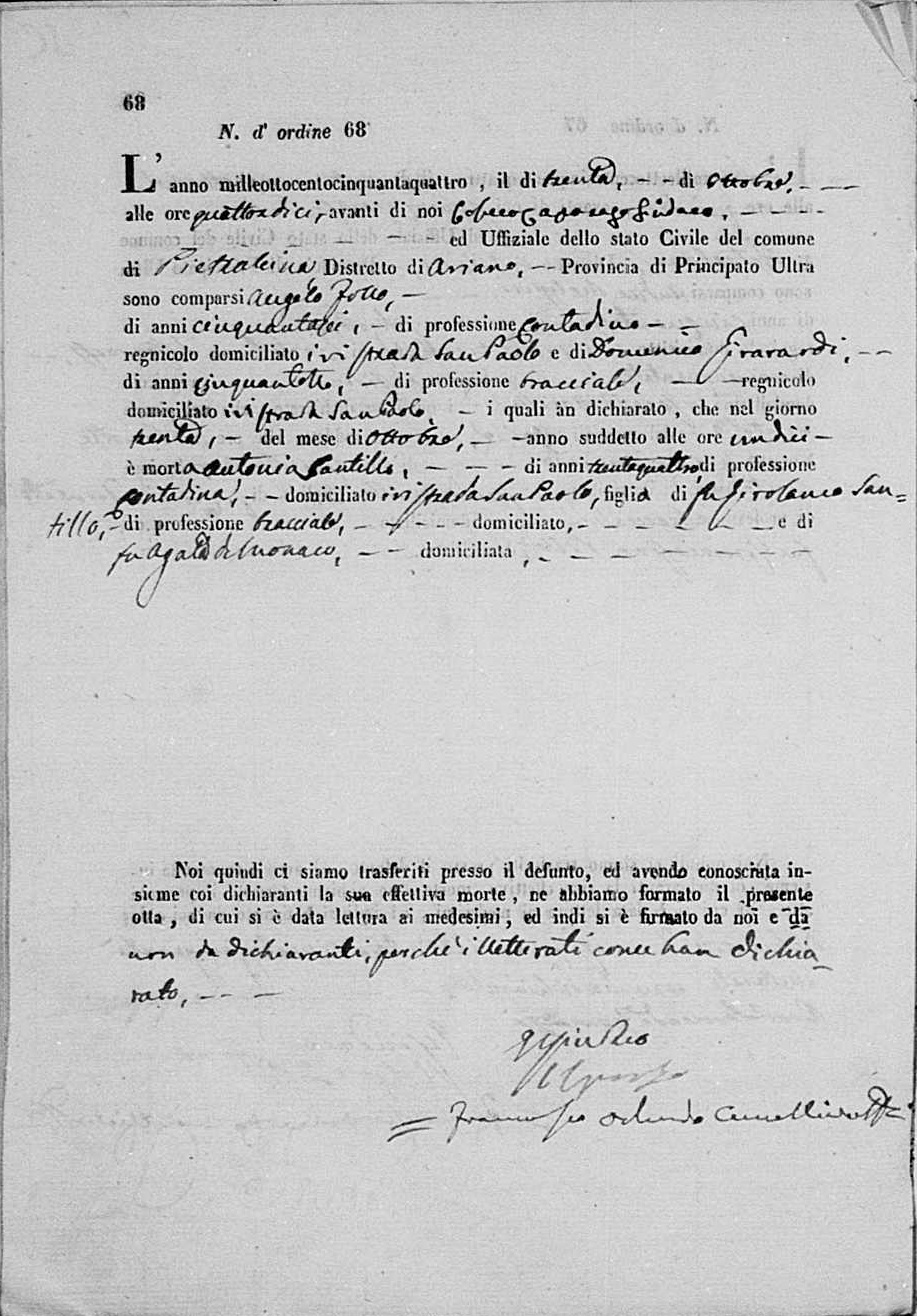 68
N. d' ordine 68
L' anno milleottocentocinquantaquattro , il di trenta, - - di Ottobre, - - -
alle ore quattordici, avanti di noi Sindaco, - - - -
- - - ed Uffiziale dello stato Civile del comune
di Pietralcina Distretto di Ariano, -- Provincia di Principato Ultra
sono comparsi Angelo Zollo, -
di anni cinquantasei, - di professione Contadino - -
regnicolo domiciliato ivi strada San Paolo e di Domenico Girardi, --
di anni cinquantotto, - di professione bracciale, - -regnicolo
domiciliato ivi strada San Paolo, - i quali àn dichiarato , che nel giorno
trenta, - del mese di Ottobre, - -anno suddetto alle ore undici -
è morta Antonia Santillo, - - - di anni trentaquattro di professione
contadina, - - domiciliato ivi strada San Paolo, figlia di fu Girolamo San=
tillo, - di professione bracciale, - - - - domiciliato, - - - - - e di
fu Agata de Monaco, - - domiciliata , - - - - - -
Noi quindi ci siamo trasferiti presso il defunto, ed avendo conosciuta in-
sieme coi dichiaranti la sua effettiva morte , ne abbiamo formato il presente
otta , di cui si è data lettura ai medesimi , ed indi si è firmato da noi e da
non da dichiaranti, perchè illetterati come han dichia-
rato, - - -
= Francesco Orlando Cancelliere